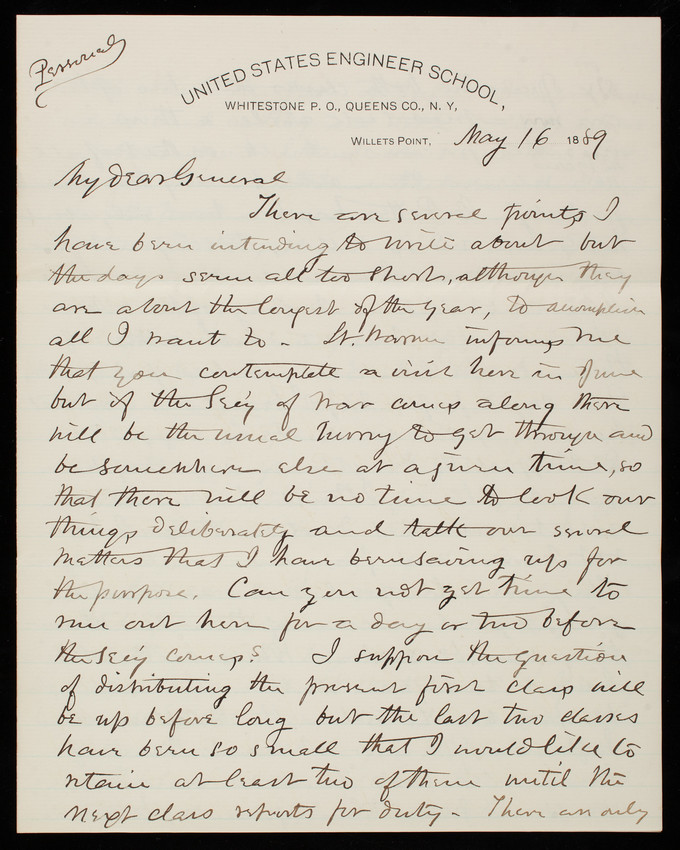 Personal
UNITED STATES ENGINEER SCHOOL,
WHITESTONE P. O., QUEENS CO., N. Y,
WILLETS POINT, May 16 1889
My dear General
There are several points I
have been intending to write about but
the days seem all too short, although they
are about the longest of the year, to accomplish
all I want to - Lt. Warren informs me
that you contemplate a visit here in June
but if the Sec'y of War comes along there
will be the usual hurry to get through and
be somewhere else at a given time, so
that there will be no time to look our
things deliberately and talk our several
matters that I have been saving up for
the purpose. Can you not get time to
run out here for a day or two before
the Sec'y comes? I suppose the question
of distributing the present first class will
be up before long but the last two classes
have been so small that I would like to
retain at least two of them until the
next class reports for duty - There are only